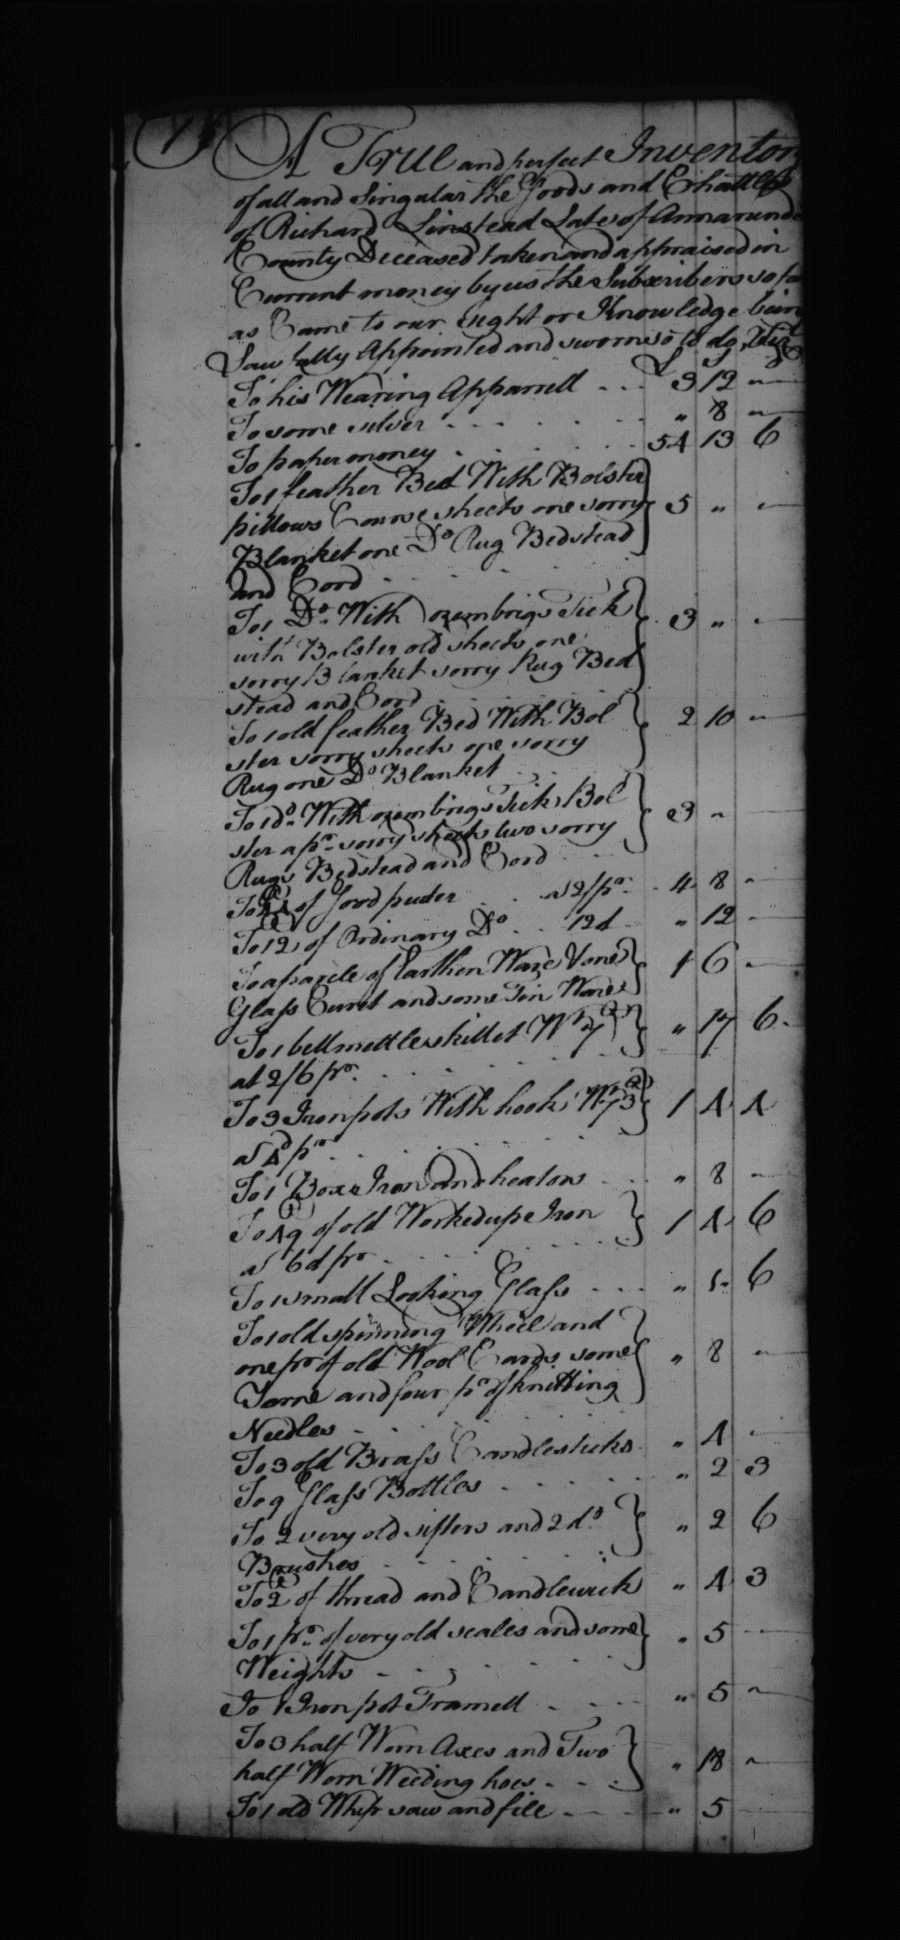 A True and perfect Inventory
of all and Singular the Goods and Chattles
of Richard Linstead Late of Annarunde
County Deceased taken and appraised in
Current money by us the Subscribers so fa
as Came to our sight or Knowledge bein
Lawfully Appointed and sworn so to do, Viz
£ S
To his Wearing Apparrell . . . 3 12 "
To some silver . . . . " 8 "
To paper money . . . . 54 13 6
To 1 feather Bed With Bolster
pillows Course sheets one sorry 5 " "
Blanket one Do Rug Bedstead
and Cord . . . .
To 1 Do With ozembrigs Tick 3 " "
with Bolster old sheets one
sorry Blanket sorry Rug Bed
stead and Cord . . . .
To 1 old feather Bed With Bol 2 10 "
ster sorry sheets one sorry
Rug one Do Blanket
To 1 do With ozembrigs Tick Bol 3 " "
ster a pr sorry sheets two sorry
Rugs Bedstead and Cord
To 44 of Good puder . . at 2/pr 4 8 "
To 12 of Ordinary Do . . 12d " 12 "
To a parcle of Earthen Ware 1 6 "
Glass Curet and some Tin Ware
To 1 bellmettle skillet Wt 7 " 17 6
at 2/6 pr . . . .
To 3 Iron pots With hook Wt 73 1 4 4
at 4d pr . . . .
To 1 Box Iron and heators . . " 8 "
To 49 of old Workedupe Iron 1 4 6
at 6d pr . . . .
To 1 small Looking Glass . . . " 5 6
To 1 old spinning Wheel and
one pr of old Wool Cards some " 8 "
Yarne and four pr of knitting
Needles . . . .
To 3 old Brass Candlesticks " 4 "
To 9 Glass Bottles . . . . " 2 3
To 2 very old sifters and 2 do " 2 6
Brushes . . . .
To 2 of thread and Candlewick " 4 3
To 1 pr of very old scales and some " 5 "
Weights . . . .
To 1 Iron pot Tramell . . . " 5 "
To 3 half Worn Axes and Two
half Worn Weeding hoes . . . " 18 "
To 1 old Whip saw and file . . . " 5